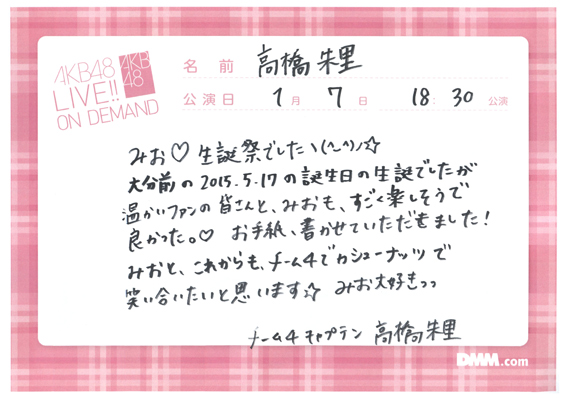 AKB48
LIVE!!
ON DEMAND
AKB
48
名前 高橋朱里
公演日 1月 7日 18:30 公演
みお♡生誕祭でしたヽ(^-^)ノ☆
大分前の2015.5.17の誕生日の生誕でしたが
温かいファンの皆さんと、みおも、すごく楽しそうで
良かった。♡ お手紙、書かせていただきました!
みおと、これからも、チーム4でカシューナッツで
笑い合いたいと思います☆ みお大好きっっ
チーム4 キャプテン 高橋朱里
DMM.com